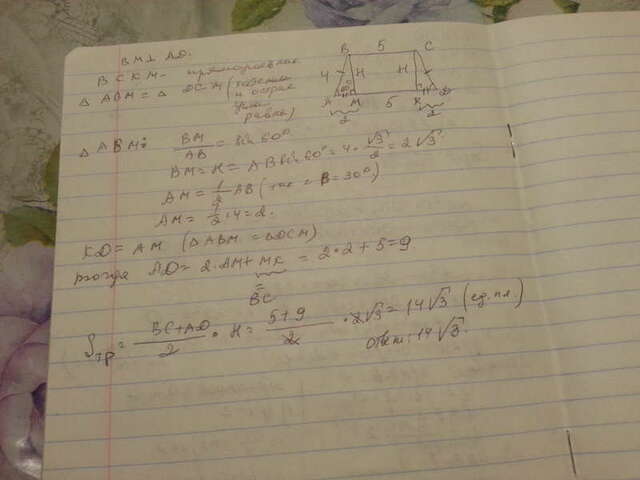 BM⊥AD.
BCKM - прямоугольник
△ABM = △DCM (
и острые
углы
равны)
B 5 C
4 H H
A M 5 K D
2 2
△ABM: BM/AB = sin 60°
BM = H = AB sin 60° = 4 · √3/2 = 2√3
AM = 1/2 AB (так = B = 30°)
AM = 1/2 · 4 = 2.
KD = AM (△ABM = △DCM)
тогда AD = 2·AM + MK = 2·2 + 5 = 9
=
BC
Sтр = BC+AD/2 · H = 5+9/2 · 2√3 = 14√3 (ед.пл.)
Ответ: 14√3.